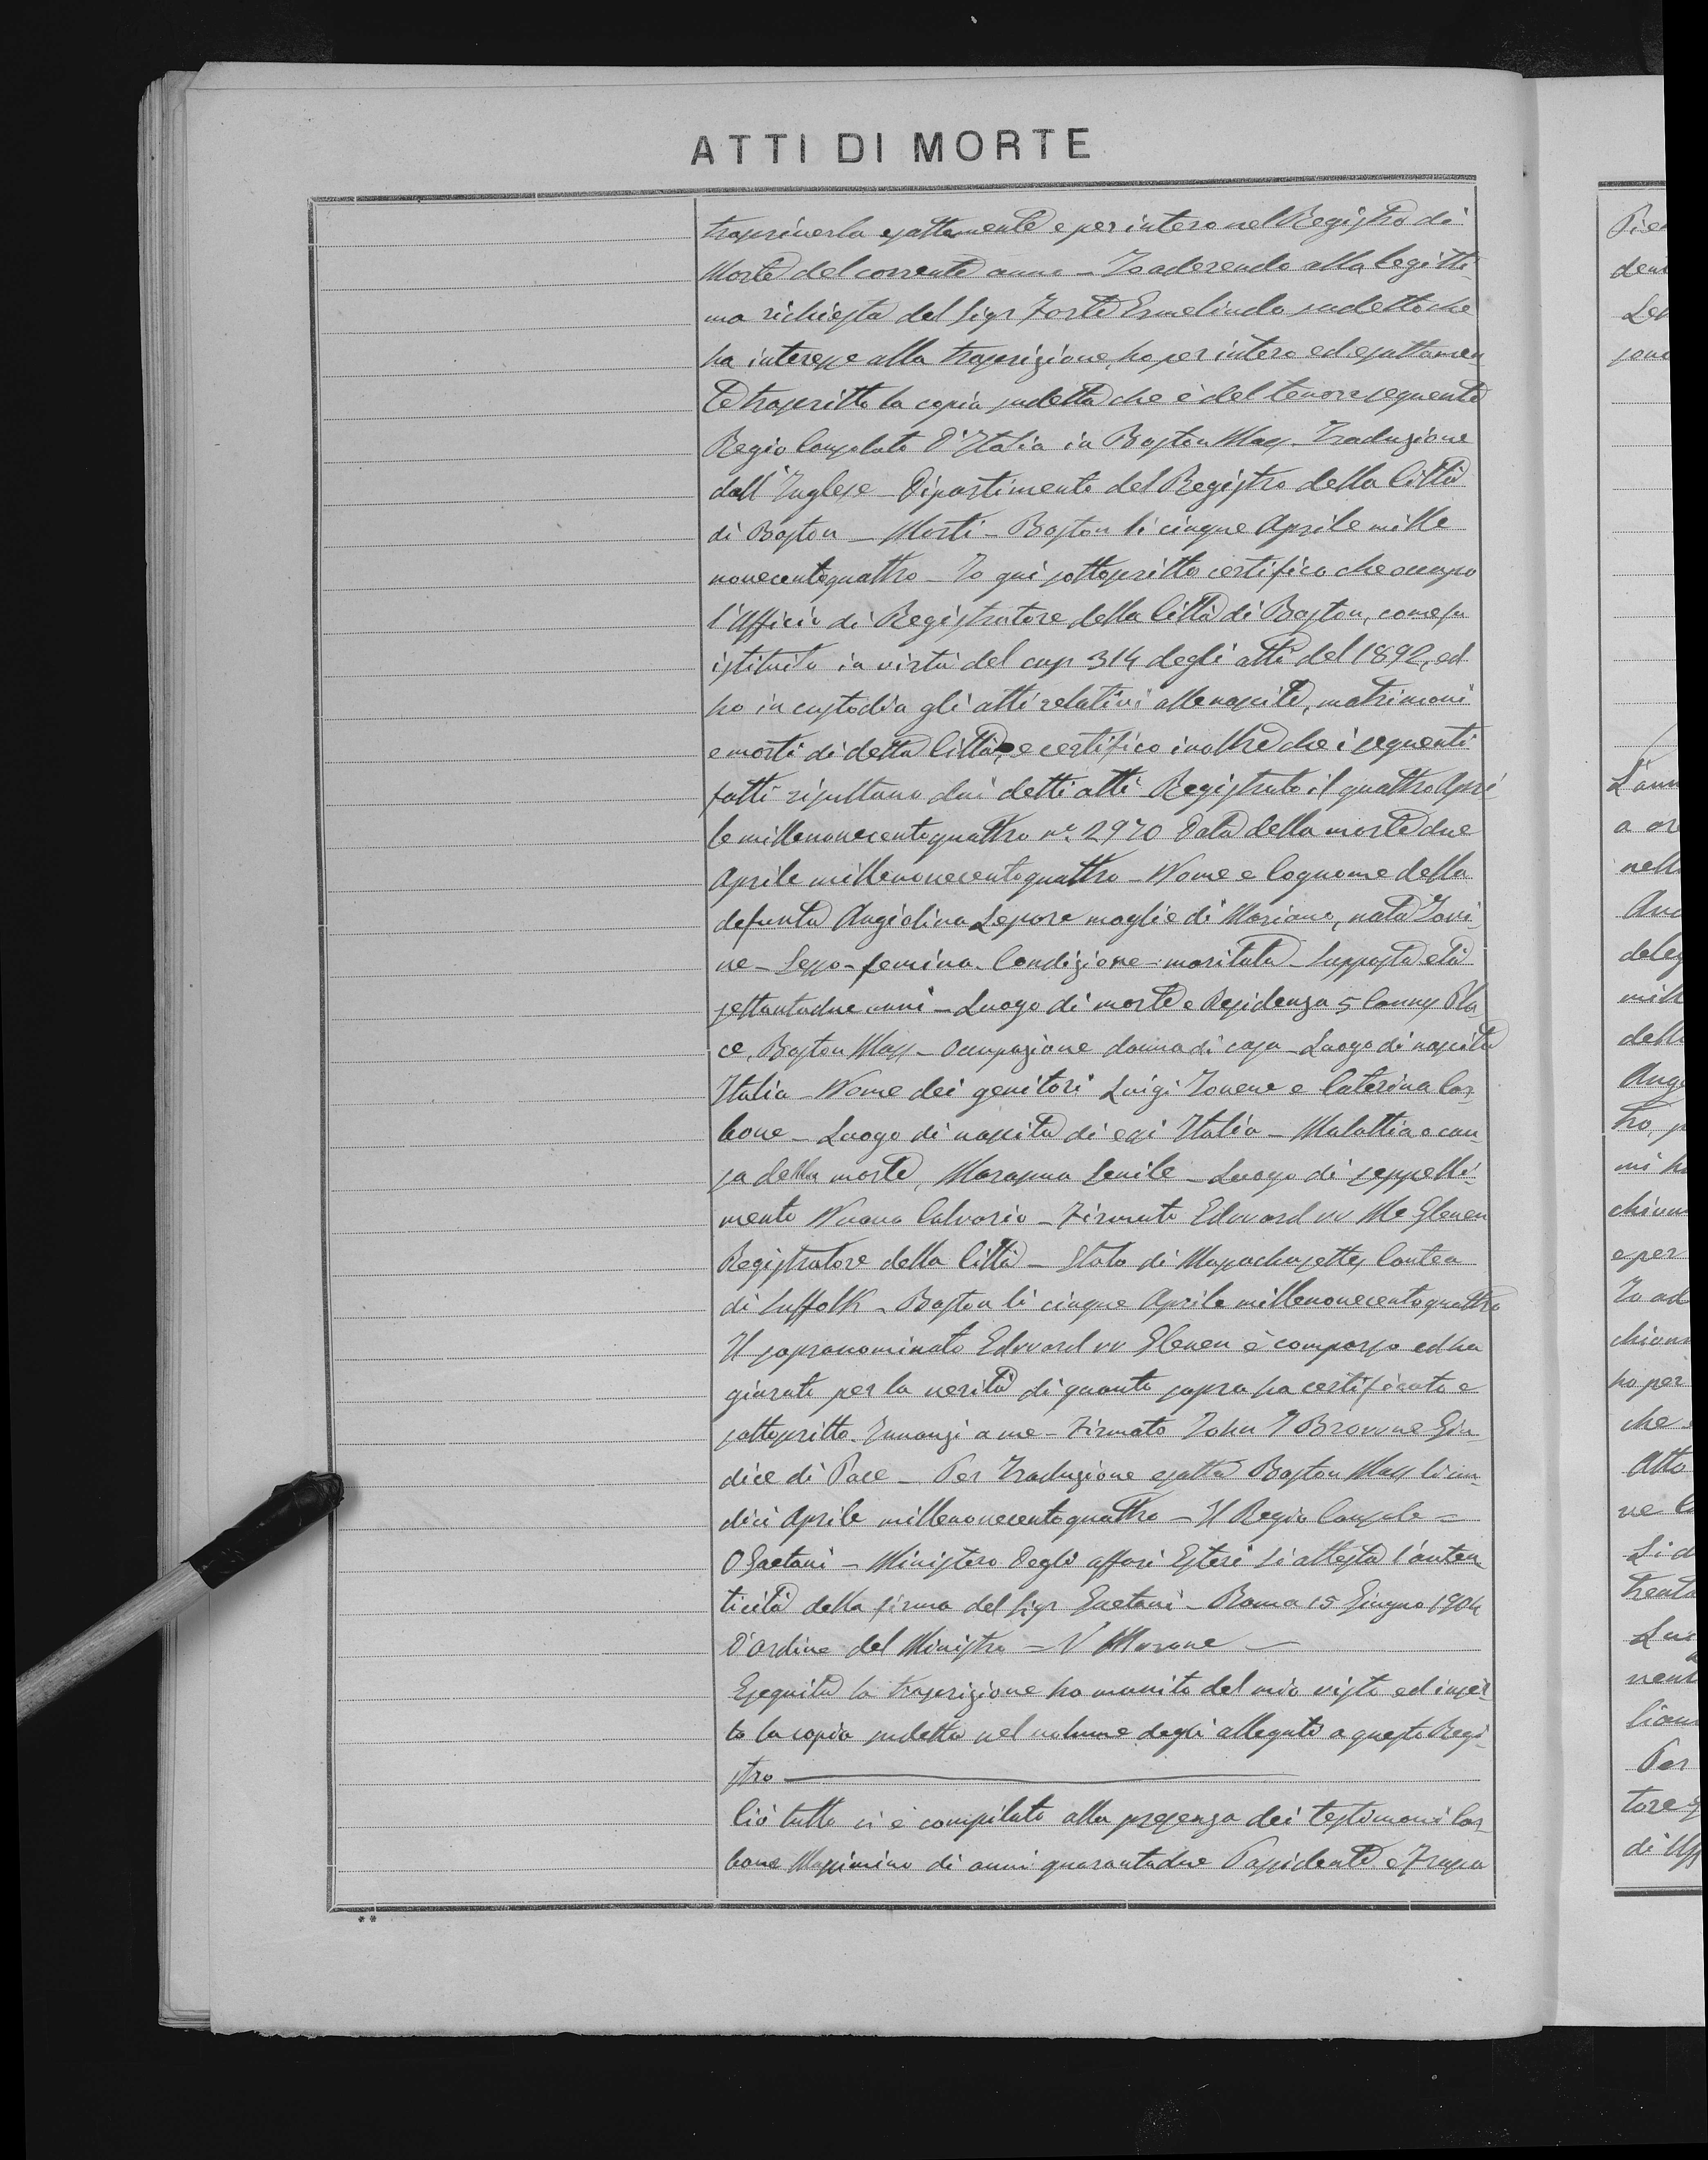 ATTI DI MORTE
trascriverla esattamente e per intero nel Registro di
Morte del corrente anno – Io aderendo alla legitti-
ma richiesta del Sigr Forte Ermelindo sudetto che
ha interesse alla trascrizione, ho per intero ed esattamen-
te trascritto la copia sudetta che è del tenore seguente
Regio Consolato D'Italia in Boston Mass – Traduzione
dall'Inglese – Dipartimento del Registro della Città
di Boston – Morti – Boston li cinque Aprile mille
novecentoquattro – Io qui sottoscritto certifico che occupo
l'Officio di Registratore della Città di Boston, come fu
istituito in virtù del cap 314 degli atti del 1892, ed
ho in custodia gli atti relativi alle nascite, matrimoni
e morti di detta Città, e certifico inoltre che i seguenti
fatti risultano dai detti atti – Registrato il quattro Apri-
le millenovecentoquattro n.º 2970 Data della morte due
Aprile millenovecentoquattro – Nome e Cognome della
defunta Angiolina Lepore moglie di Mariano, nata Iovi-
ne – Sesso – femina – Condizione – maritata – Supposta età
settantadue anni – Luogo di morte e Residenza 5 Cannys Pla-
ce, Boston Mass – Occupazione donna di casa – Luogo di nascita
Italia – Nome dei genitori Luigi Iovene e Caterina Car-
bone – Luogo di nascita di essi Italia – Malattia o cau-
sa della morte, Marasma Senile – Luogo di seppelli-
mento Nuovo Calvario – Firmato Edward W Mc Glenen
Registratore della Città – Stato di Massachusettes Contea
di Suffolk – Boston li cinque Aprile millenovecentoquattro
Il sopranominato Edward W Glenen è comparso ed ha
giurato per la verità di quanto sopra ha certificato e
sottoscritto. Innanzi a me – Firmato John I Browne Giu-
dice di Pace – Per Traduzione esatta Boston Mass li un-
dici Aprile millenovecentoquattro – Il Regio Console =
O Gaetani – Ministero Degli affari Esteri Si attesta l'auten-
ticità della firma del Sigr Gaetani – Roma 15 Giugno 1904
D'ordine del Ministro = V Marone –
Eseguita la trascrizione ho munito del mio visto ed inseri-
to la copia sudetta nel volume degli allegati a questo Regi-
stro
Ciò tutto si è compilato alla presenza dei testimoni Car-
bone Massimino di anni quarantadue Possidente e